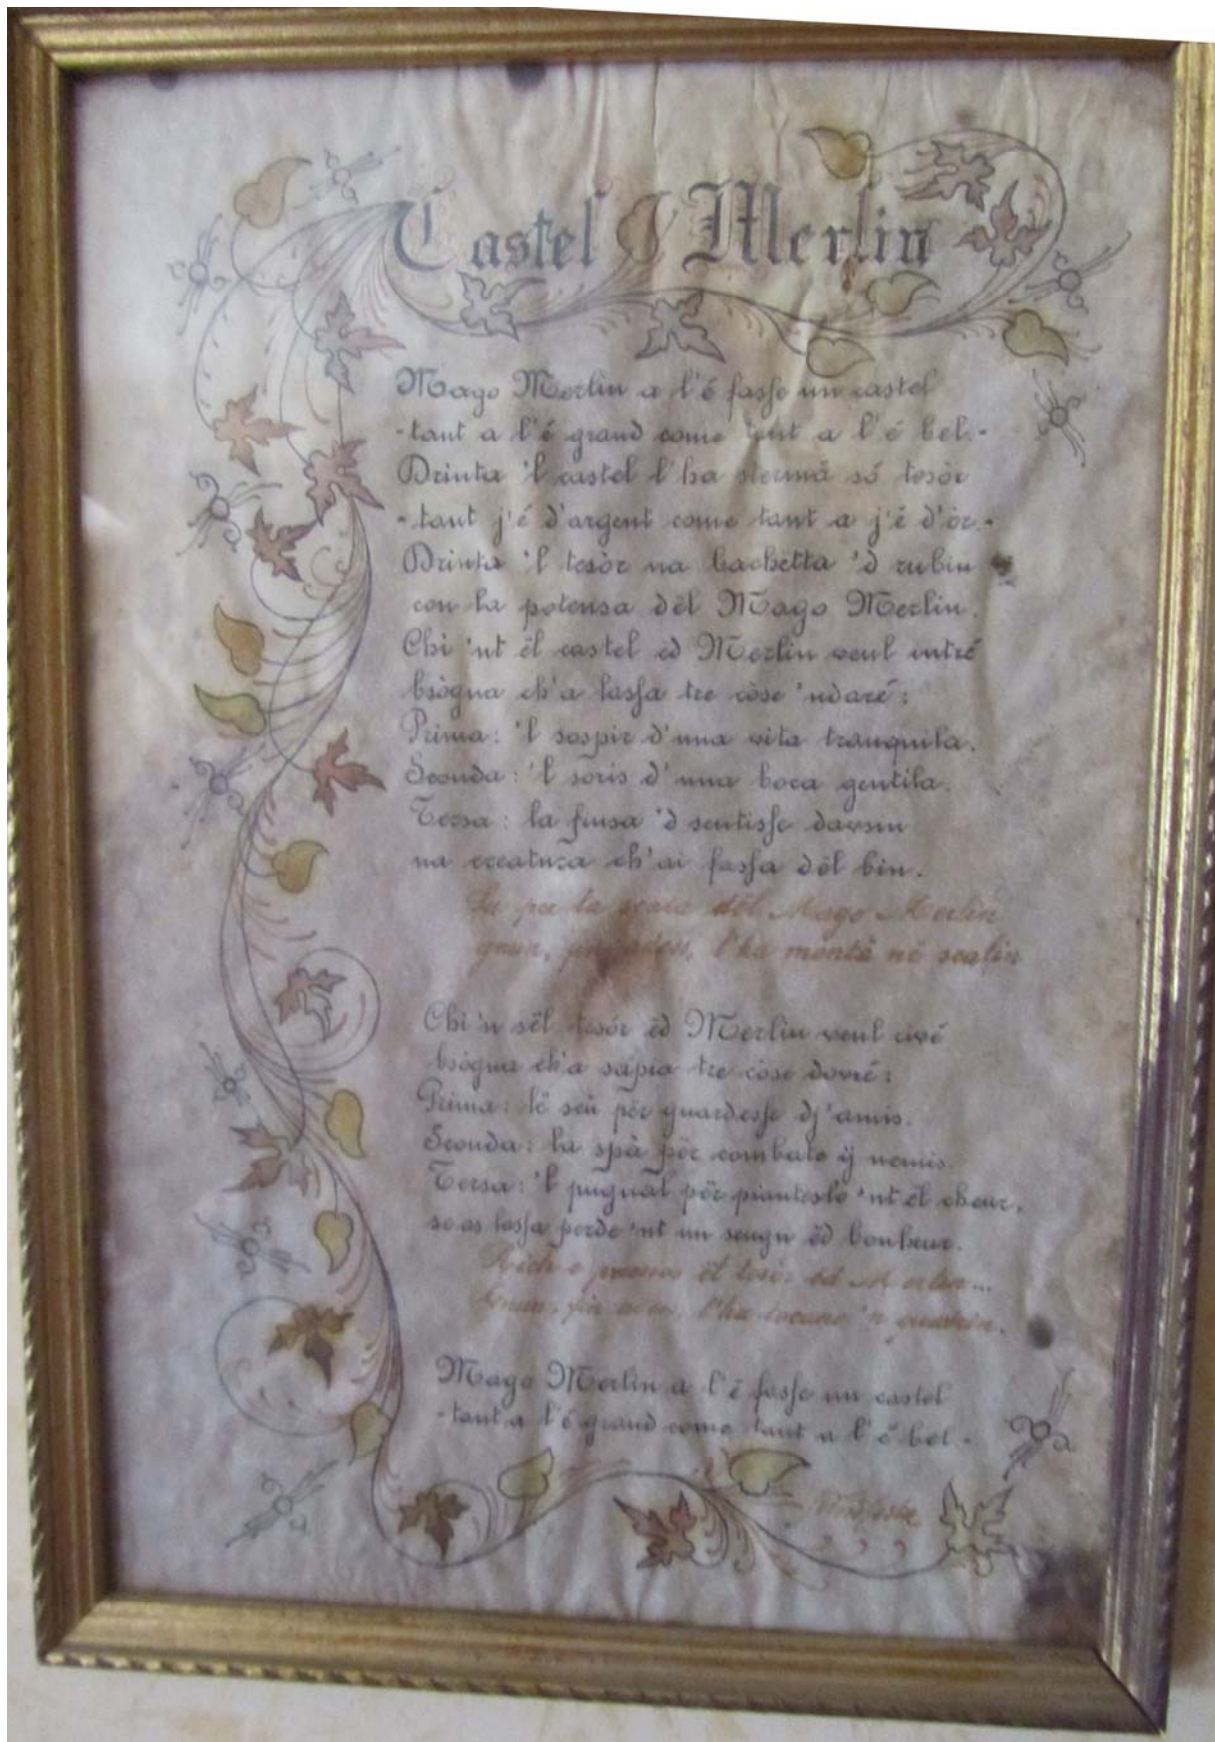 Castel Merlin
Mago Merlin a l'é fasse un castel
-tant a l'é grand come tant a l'é bel.-
Drinta 'l castel l'ha stermà só tesòr
-tant j'é d'argent come tant a j'é d'òr.-
Drinta 'l tesòr na bachëtta 'd rubin
con la potensa dël Mago Merlin.
Chi 'nt ël castel ëd Merlin veul intré
bsògna ch'a lassa tre còse 'ndaré:
Prima: 'l sospir d'una vita tranquila.
Sconda: 'l soris d'una boca gentila.
Tersa: la finsa 'd sentisse davsin
na creatura ch'ai fassa dël bin.
Su per la scala dël Mago Merlin
gnun, l'ha montà në scalin
Chi 'n sël tesòr ëd Merlin veul rivé
bsògna ch'a sapia tre còse dovré:
Prima: lë scù për guardesse dj'amis.
Sconda: la spà për combate ij nemis.
Tersa: 'l pugnal për pianteslo 'nt ël cheur,
se as lassa perde 'nt un seugn ëd bonheur.
ël tesòr ëd Merlin...
Gnun, l'ha
Mago Merlin a l'é fasse un castel
-tant a l'é grand come tant a l'é bel-